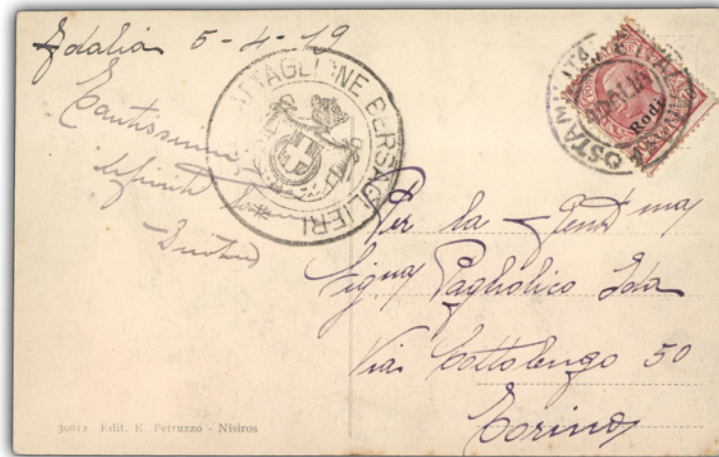 Adalia 5-4-19
BATTAGLIONE BERSAGLIERI
POSTA MILITARE
ADALIA
Rodi
Per la Gent ma
Signa Pagliolico Ida
Via Cottolengo 50
Torino
39612 Edit. E. Petruzzo - Nisiros